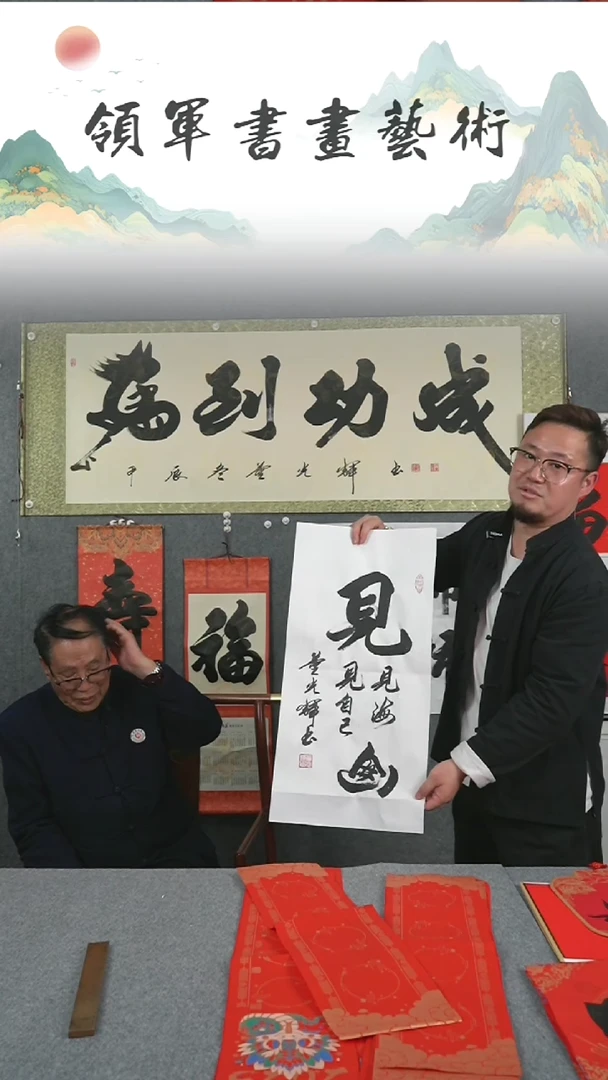 領軍書畫藝術
馬到功成
甲辰冬董光輝书
福
見山
見海
見自己
董光輝书